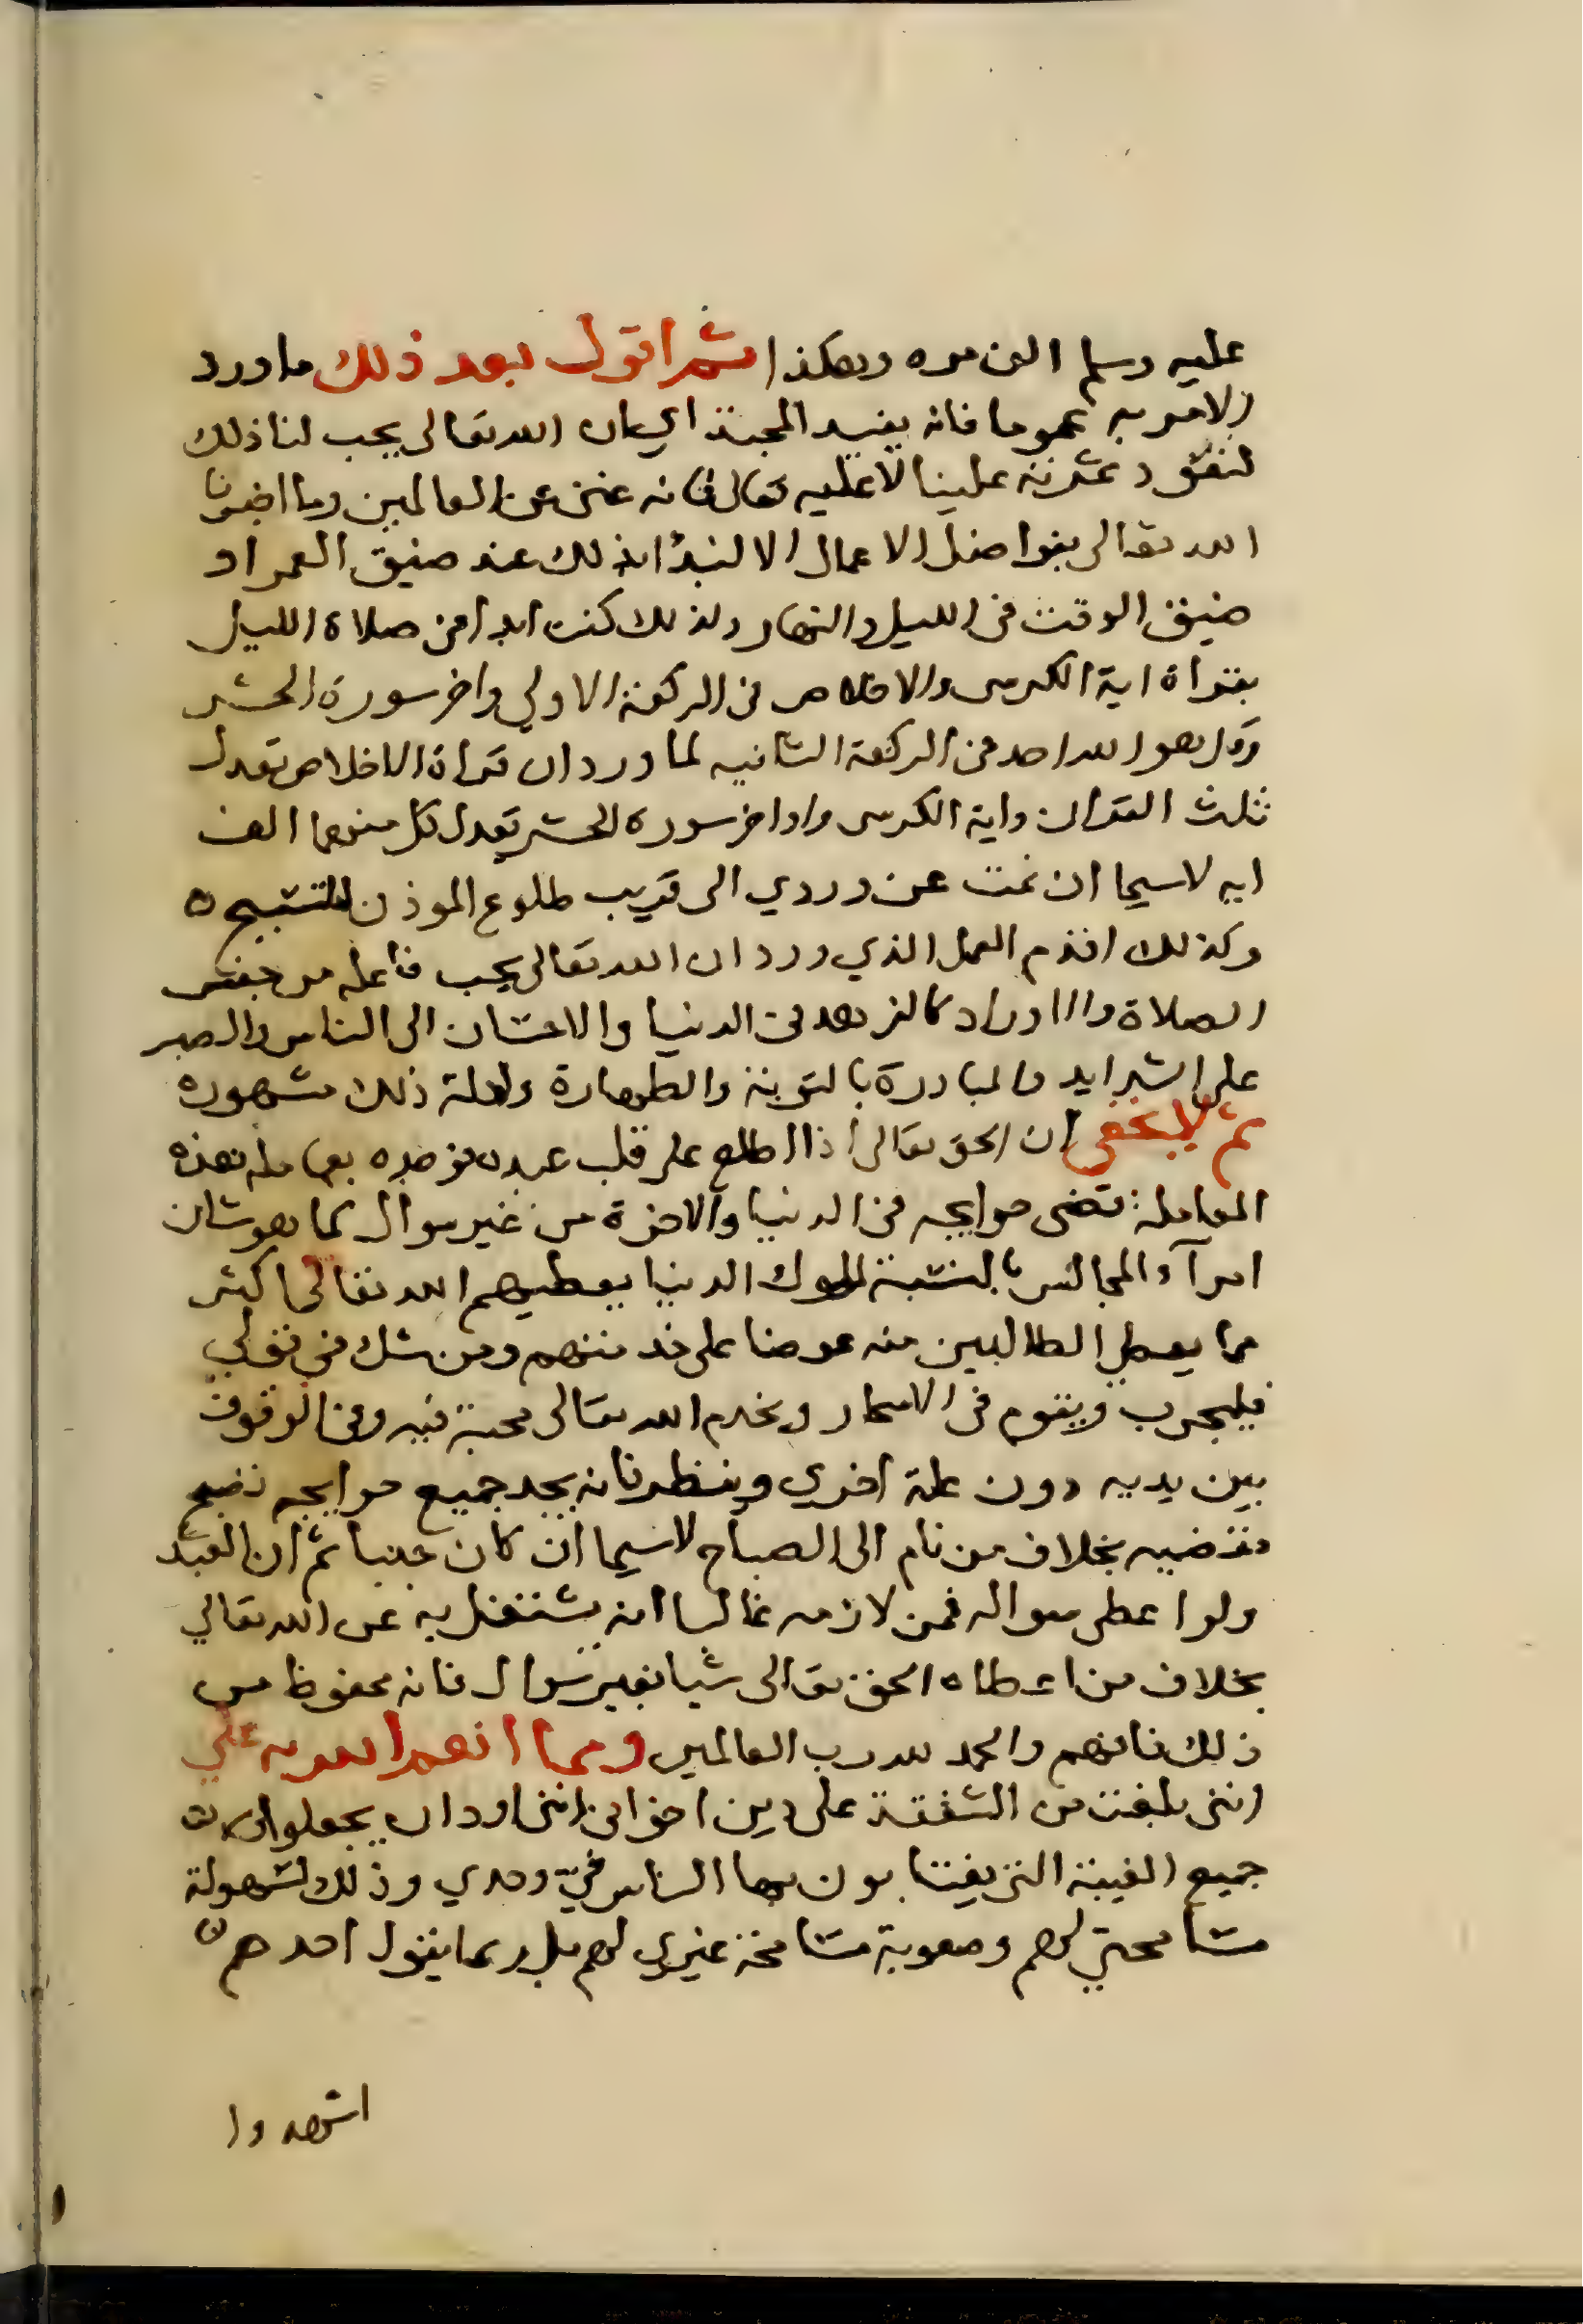 عليه وسلم الف مره وهكذا ثم اقول بعد ذلك ما ورد
الامر به عموما فانه يفيد المحبة اي بان الله تعالى يحب لنا ذلك
لتعود ثمرته علينا لا عليه تعالى فانه غني عن العالمين وما اخبرنا
الله تعالى بفواضل الاعمال الا لنبدأ بذلك عند ضيق العمر او
ضيق الوقت في الليل والنهار ولذلك كنت ابدا في صلاة الليل
بقراة اية الكرسي والاخلاص في الركعة الاولي واخر سورة الحشر
وقل هو الله احد في الركعة الثانيه لما ورد ان قراة الاخلاص تعدل
ثلث القران واية الكرسي واواخر سورة الحشر تعدل كل منهما الف
ايه لاسيما ان نمت عن وردي الى قريب طلوع الموذن للتسبيح
وكذلك اقدم العمل الذي ورد ان الله تعالى يحب فاعله من جنس
الصلاة والاوراد كالزهد في الدنيا والاحسان الى الناس والصبر
على الشدايد والمبادرة بالتوبة والطهارة وادلة ذلك مشهورة
ثم لا يخفى ان الحق تعالى اذا اطلع على قلب عبده فوجده يعامله بهذه
المعاملة قضى حوايجه في الدنيا والاخرة من غير سوال كما هو شان
امرآء المجالس بالنسبة لملوك الدنيا يعطيهم الله تعالى اكثر
مما يعطي الطالبين منه عوضا على خدمتهم ومن شك في قولي
فليجرب ويقوم في الاسحار ويخدم الله تعالى محبة فيه وفي الوقوف
بين يديه دون علة اخري وينظر فانه يجد جميع حوايجه تصبح
مقضيه بخلاف من نام الى الصباح لاسيما ان كان جنبا ثم ان العبد
ولو اعطى سواله فمن لازمه غالبا انه يشتغل به عن الله تعالي
بخلاف من اعطاه الحق تعالى شيا بغير سوال فانه محفوظ من
ذلك فافهم والحمد لله رب العالمين ومما انعم الله به علي
انني بلغت من الشفقة على دين اخواني انني اود ان يجعلوا
جميع الغيبة التي يغتابون بها الناس فيّ وحدي وذلك لسهولة
مسامحتي لهم وصعوبة مسامحة غيري لهم بل ربما يقول احدهم
اشهدوا